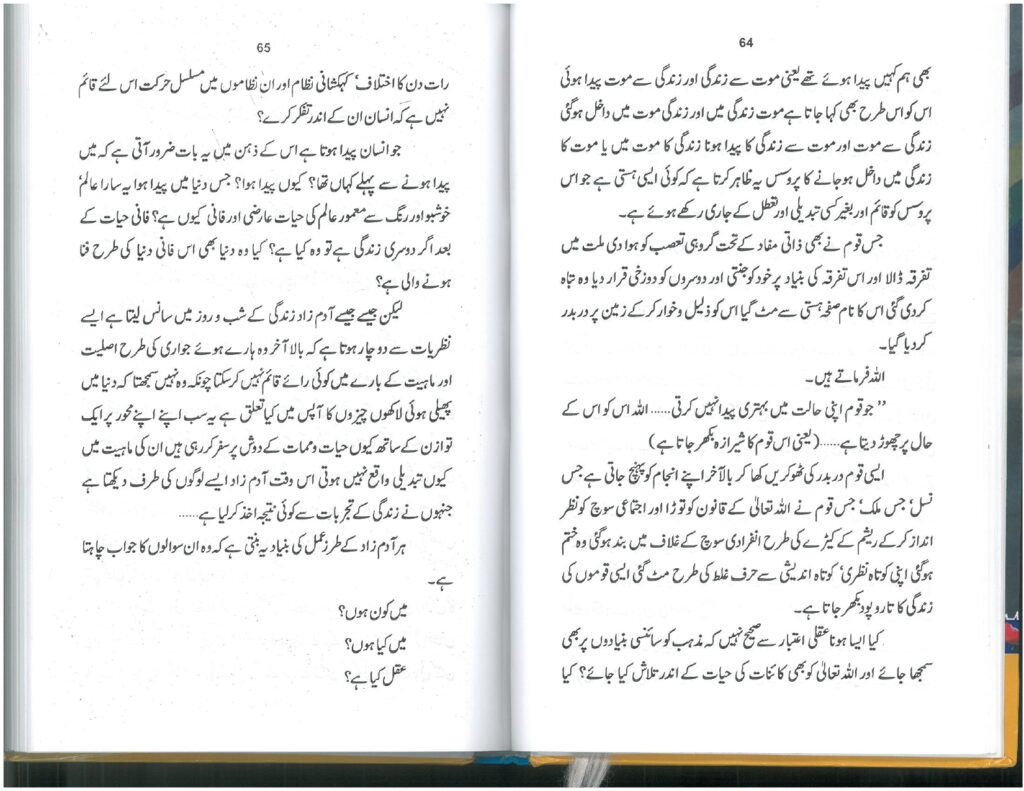 64
بھی ہم کہیں پیدا ہوئے تھے یعنی موت سے زندگی اور زندگی سے موت پیدا ہوئی
اس کو اس طرح بھی کہا جاتا ہے موت زندگی میں اور زندگی موت میں داخل ہوگئی
زندگی سے موت اور موت سے زندگی کا پیدا ہونا زندگی کا موت میں یا موت کا
زندگی میں داخل ہوجانے کا پروسس یہ ظاہر کرتا ہے کہ کوئی ایسی ہستی ہے جو اس
پروسس کو قائم اور بغیر کسی تبدیلی اور تعطل کے جاری رکھے ہوئے ہے۔
جس قوم نے بھی ذاتی مفاد کے تحت گروہی تعصب کو ہوا دی ملت میں
تفرقہ ڈالا اور اس تفرقہ کی بنیاد پر خود کو جنتی اور دوسروں کو دوزخی قرار دیا وہ تباہ
کردی گئی اس کا نام صفحہ ہستی سے مٹ گیا اس کو ذلیل و خوار کرکے زمین پر در بدر
کردیا گیا۔
اللہ فرماتے ہیں۔
” جو قوم اپنی حالت میں بہتری پیدا نہیں کرتی...... اللہ اس کو اس کے
حال پر چھوڑ دیتا ہے......(یعنی اس قوم کا شیرازہ بکھر جاتا ہے)
ایسی قوم در بدر کی ٹھوکریں کھا کر بالآخر اپنے انجام کو پہنچ جاتی ہے جس
نسل‘ جس ملک‘ جس قوم نے اللہ تعالیٰ کے قانون کو توڑا اور اجتماعی سوچ کو نظر
انداز کرکے ریشم کے کیڑے کی طرح انفرادی سوچ کے غلاف میں بند ہوگئی وہ ختم
ہوگئی اپنی کوتاہ نظری‘ کوتاہ اندیشی سے حرف غلط کی طرح مٹ گئی ایسی قوموں کی
زندگی کا تار و پود بکھر جاتا ہے۔
کیا ایسا ہونا عقلی اعتبار سے صحیح نہیں کہ مذہب کو سائنسی بنیادوں پر بھی
سمجھا جائے اور اللہ تعالیٰ کو بھی کائنات کی حیات کے اندر تلاش کیا جائے؟ کیا
65
رات دن کا اختلاف‘ کہکشانی نظام اور ان نظاموں میں مسلسل حرکت اس لئے قائم
نہیں ہے کہ انسان ان کے اندر تفکر کرے؟
جو انسان پیدا ہوتا ہے اس کے ذہن میں یہ بات ضرور آتی ہے کہ میں
پیدا ہونے سے پہلے کہاں تھا؟ کیوں پیدا ہوا؟ جس دنیا میں پیدا ہوا یہ سارا عالم‘
خوشبو اور رنگ سے معمور عالم کی حیات عارضی اور فانی کیوں ہے؟ فانی حیات کے
بعد اگر دوسری زندگی ہے تو وہ کیا ہے؟ کیا وہ دنیا بھی اس فانی دنیا کی طرح فنا
ہونے والی ہے؟
لیکن جیسے جیسے آدم زاد زندگی کے شب و روز میں سانس لیتا ہے ایسے
نظریات سے دوچار ہوتا ہے کہ بالآخر وہ ہارے ہوئے جواری کی طرح اصلیت
اور ماہیت کے بارے میں کوئی رائے قائم نہیں کرسکتا چونکہ وہ نہیں سمجھتا کہ دنیا میں
پھیلی ہوئی لاکھوں چیزوں کا آپس میں کیا تعلق ہے یہ سب اپنے اپنے محور پر ایک
توازن کے ساتھ کیوں حیات و ممات کے دوش پر سفر کررہی ہیں ان کی ماہیت میں
کیوں تبدیلی واقع نہیں ہوتی اس وقت آدم زاد ایسے لوگوں کی طرف دیکھتا ہے
جنہوں نے زندگی کے تجربات سے کوئی نتیجہ اخذ کرلیا ہے......
ہر آدم زاد کے طرز عمل کی بنیاد یہ بنتی ہے کہ وہ ان سوالوں کا جواب چاہتا
ہے۔
میں کون ہوں؟
میں کیا ہوں؟
عقل کیا ہے؟